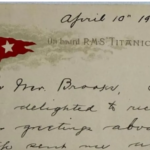 April 10th 19
On board R.M.S. TITANIC
Mrs Brooks,
delighted to re
greetings abo
send me